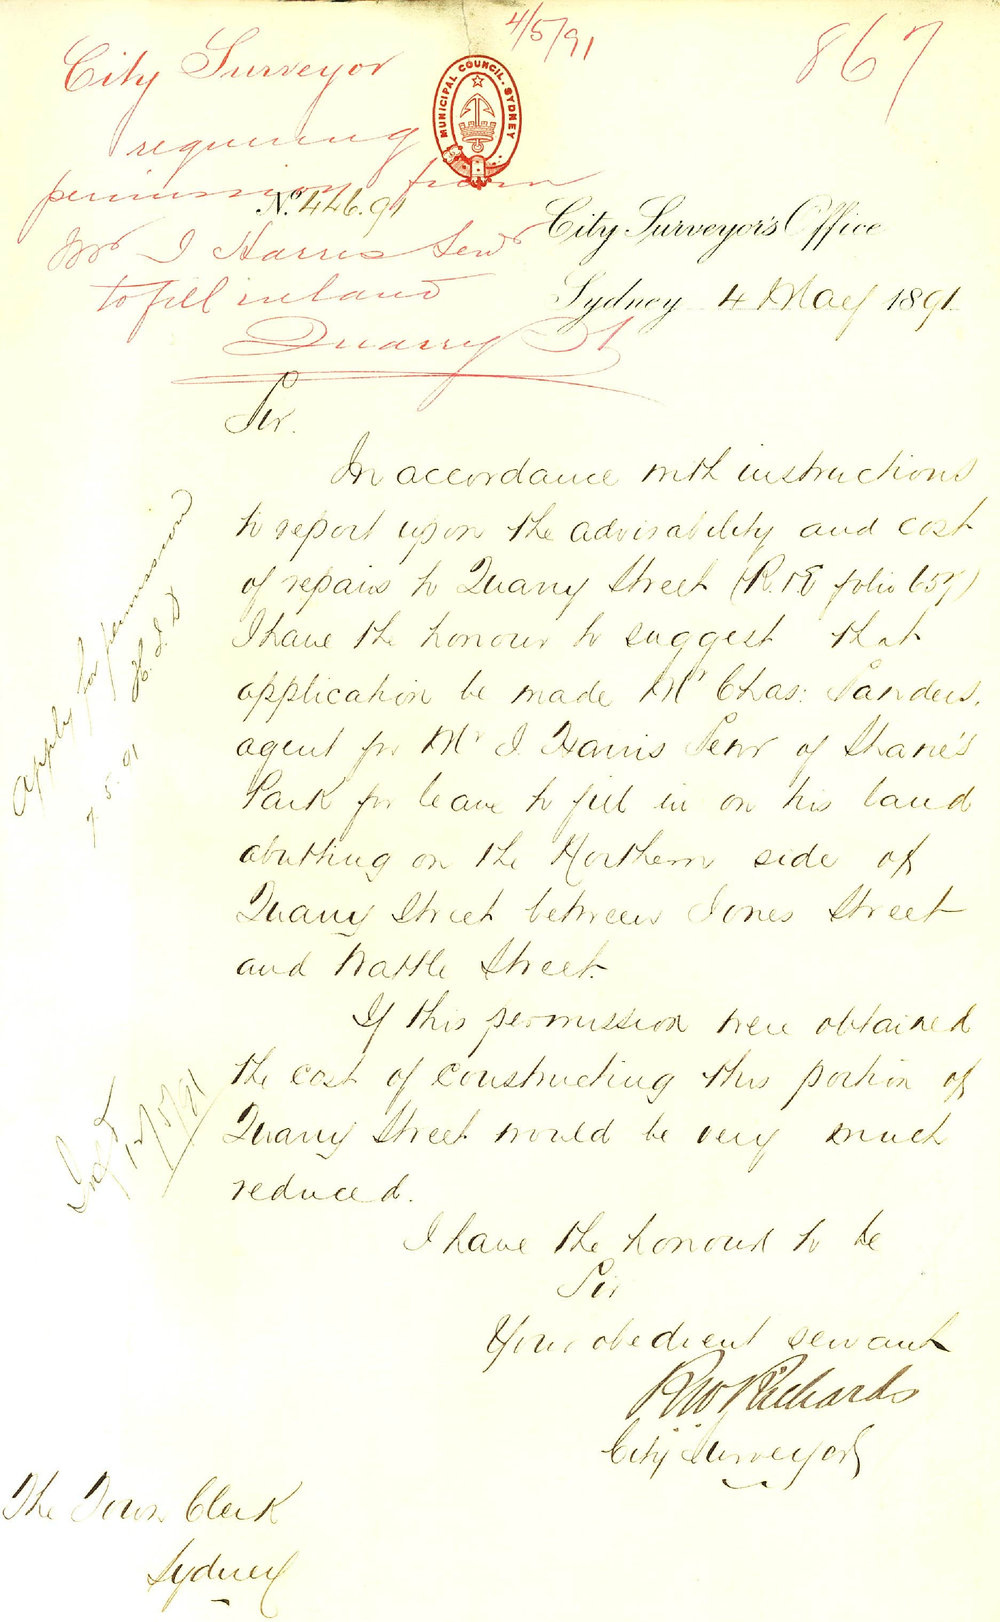 4/5/91
867
City Surveyor
requiring
permission from
Mr J Harris Senr
to fill in land
Quarry St
MUNICIPAL COUNCIL. SYDNEY
No. 446.91
City Surveyor's Office
Sydney 4 May 1891
Sir.
In accordance with instructions
to report upon the advisability and cost
of repairs to Quarry Street (R. folio 657)
I have the honour to suggest that
application be made Mr Chas: Sanders.
agent for Mr J. Harris Senr of Shane's
Park for leave to fill in on his land
abutting on the Northern side of
Quarry Street between Jones Street
and Wattle Street.
If this permission were obtained
the cost of constructing this portion of
Quarry Street would be very much
reduced.
I have the honour to be
Sir
Your obedient servant
RW Richards
City Surveyor
The Town Clerk
Sydney
Apply for permission
7.5.91
12/5/91